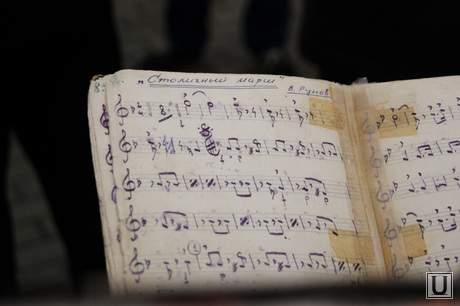 „Столичный марш"
В. Рунов
U